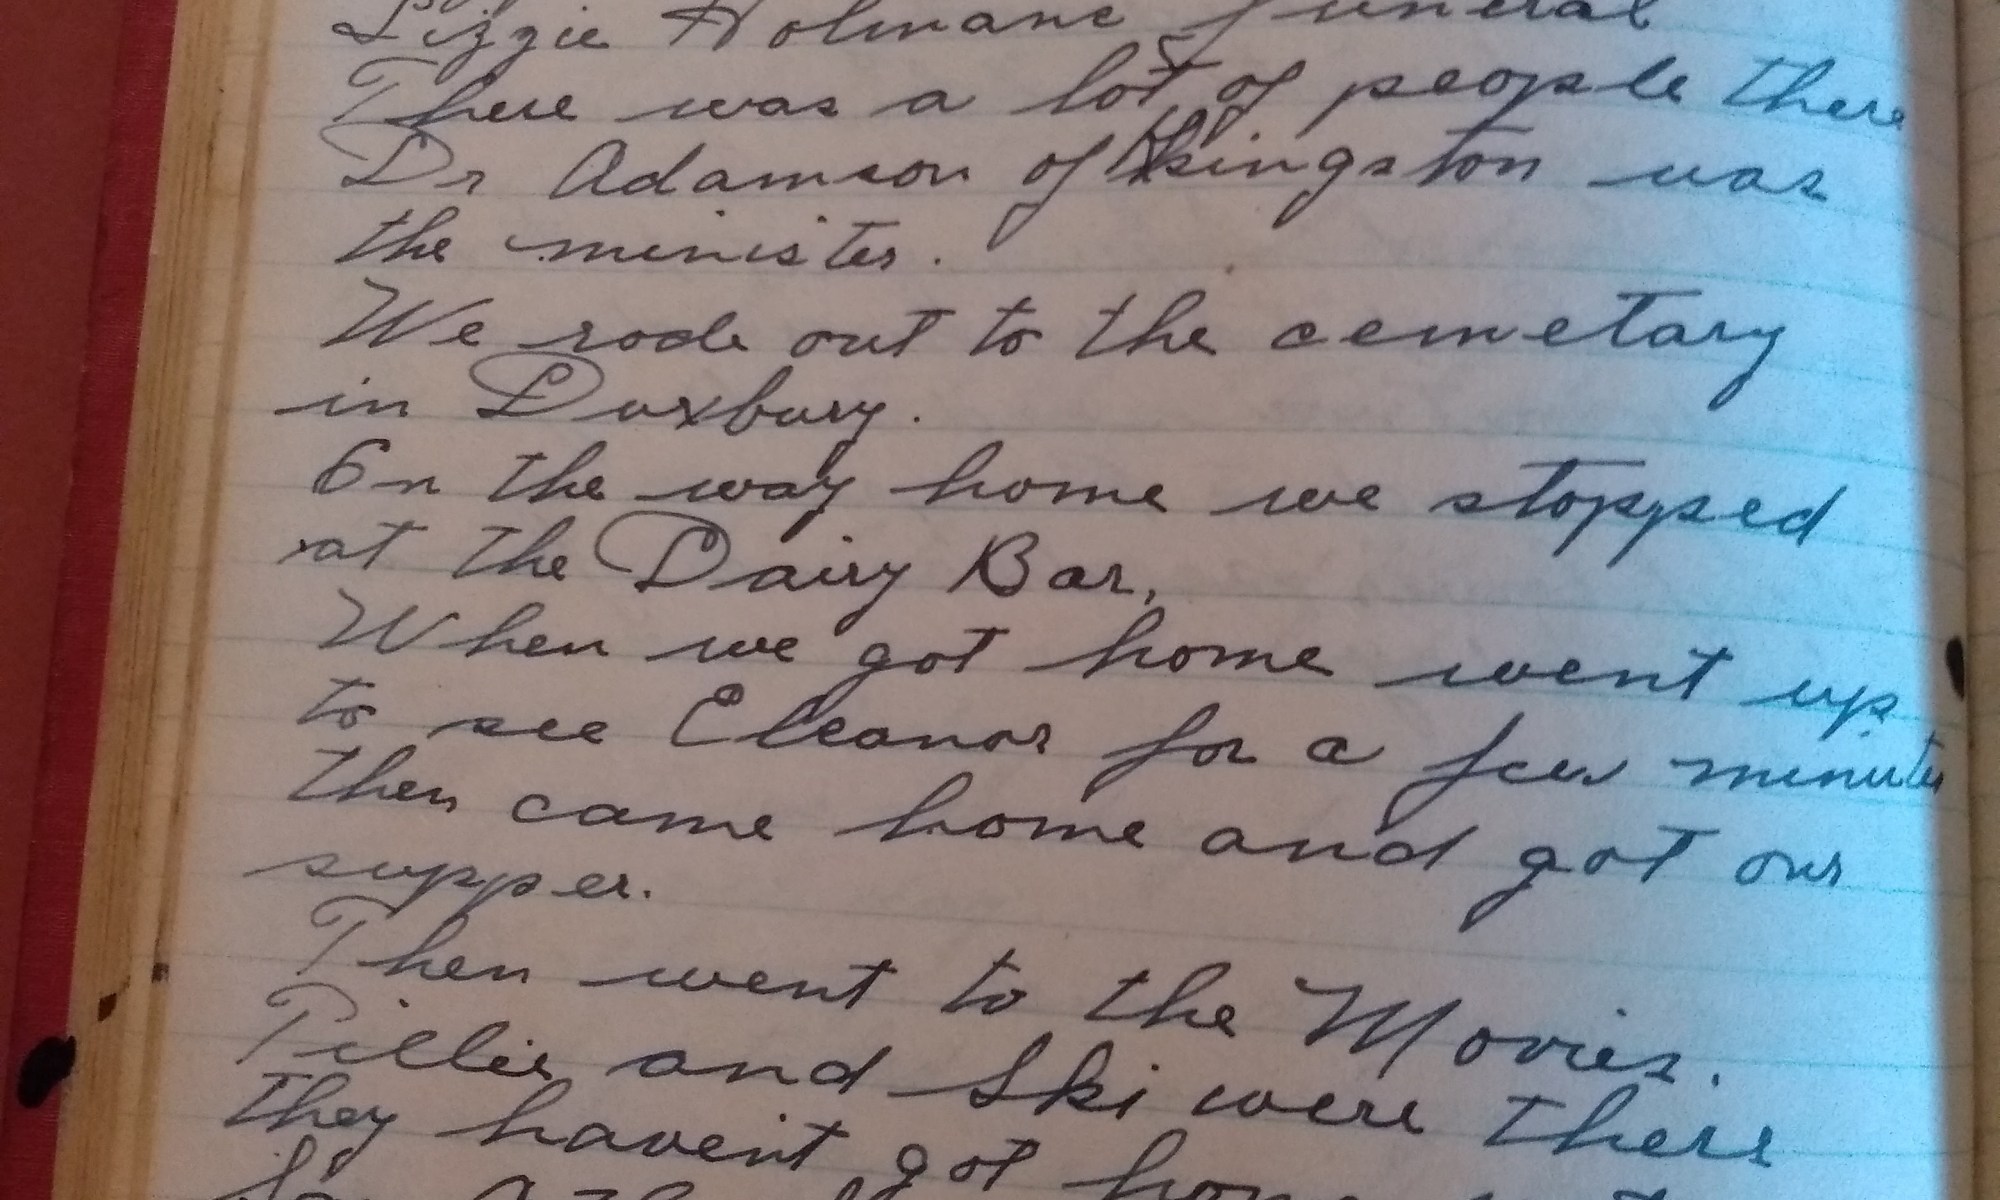 Lizzie Holmans funeral
There was a lot of people there
Dr Adamson of Kingston was
the minister.
We rode out to the cemetary
in Duxbury.
On the way home we stopped
at the Dairy Bar,
When we got home went up
to see Eleanor for a few minutes
then came home and got our
supper.
Then went to the Movies.
Tillie and Ski were there
they haven't got